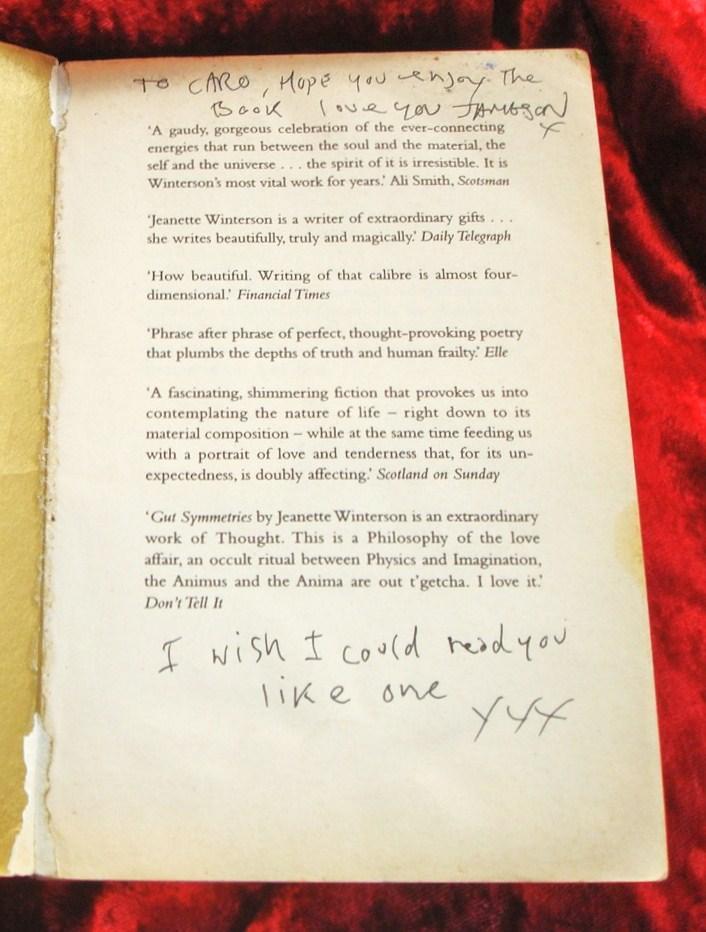 TO CARO, HOPE you enjoy The
BOOK love you JAMESON
x
'A gaudy, gorgeous celebration of the ever-connecting
energies that run between the soul and the material, the
self and the universe . . . the spirit of it is irresistible. It is
Winterson's most vital work for years.' Ali Smith, Scotsman
'Jeanette Winterson is a writer of extraordinary gifts . . .
she writes beautifully, truly and magically.' Daily Telegraph
'How beautiful. Writing of that calibre is almost four-
dimensional.' Financial Times
'Phrase after phrase of perfect, thought-provoking poetry
that plumbs the depths of truth and human frailty.' Elle
'A fascinating, shimmering fiction that provokes us into
contemplating the nature of life – right down to its
material composition – while at the same time feeding us
with a portrait of love and tenderness that, for its un-
expectedness, is doubly affecting.' Scotland on Sunday
'Gut Symmetries by Jeanette Winterson is an extraordinary
work of Thought. This is a Philosophy of the love
affair, an occult ritual between Physics and Imagination,
the Animus and the Anima are out t'getcha. I love it.'
Don't Tell It
I wish I could read you
like one
xxx